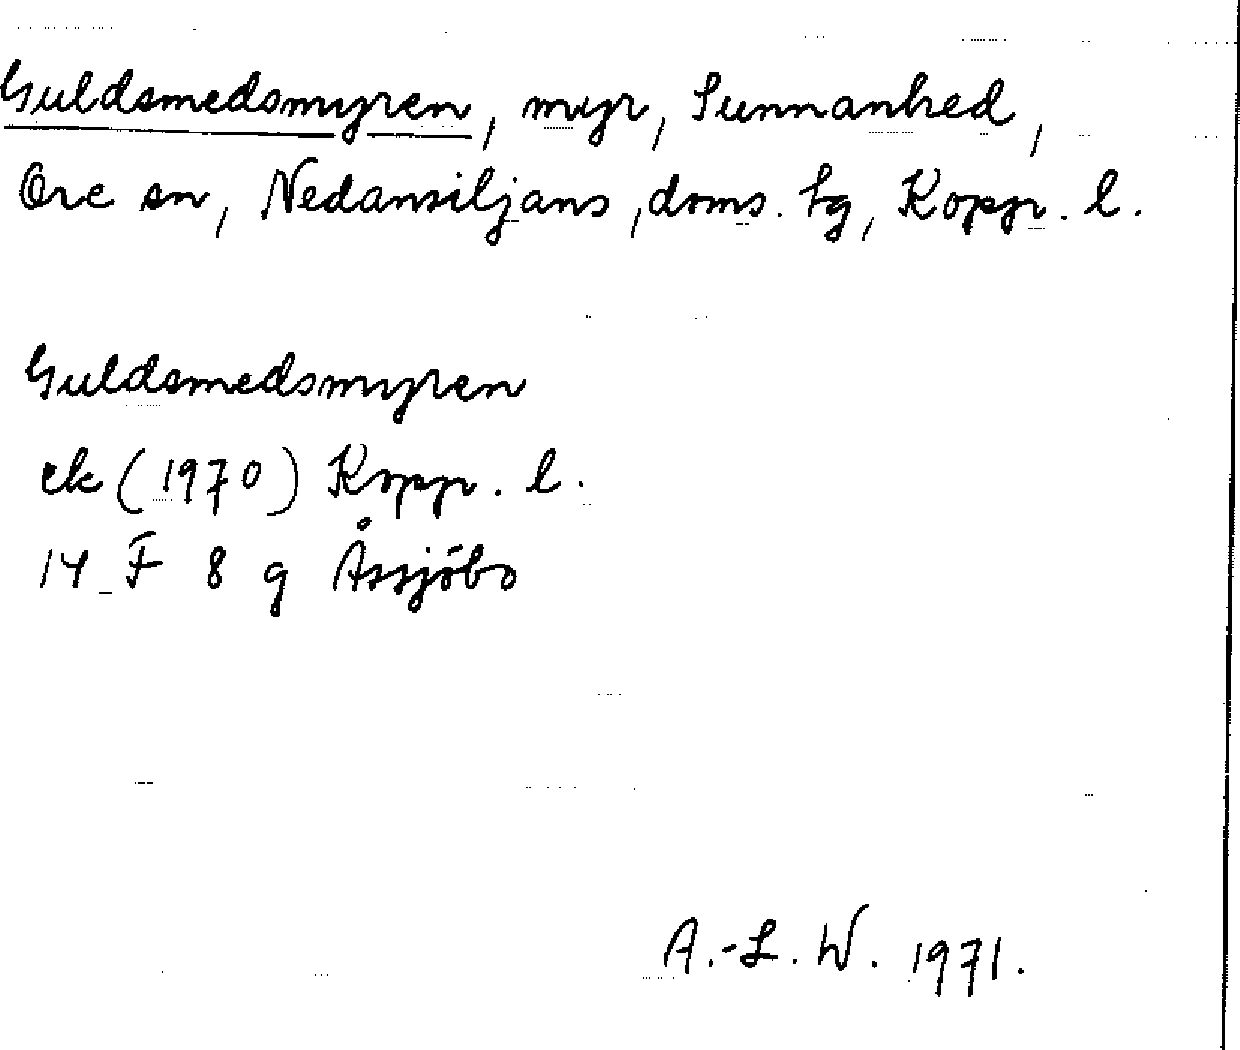 Guldsmedsmyren, myr, Sunnanhed,
Ore sn, Nedansiljans, doms. tg, Koppr. l.
Guldsmedsmyren
ek (1970) Koppr. l.
14 F 8 g Åssjöbo
A.-L. W. 1971.